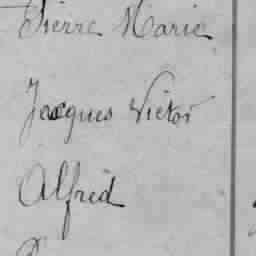 Pierre Marie
Jacques Victor
Alfred